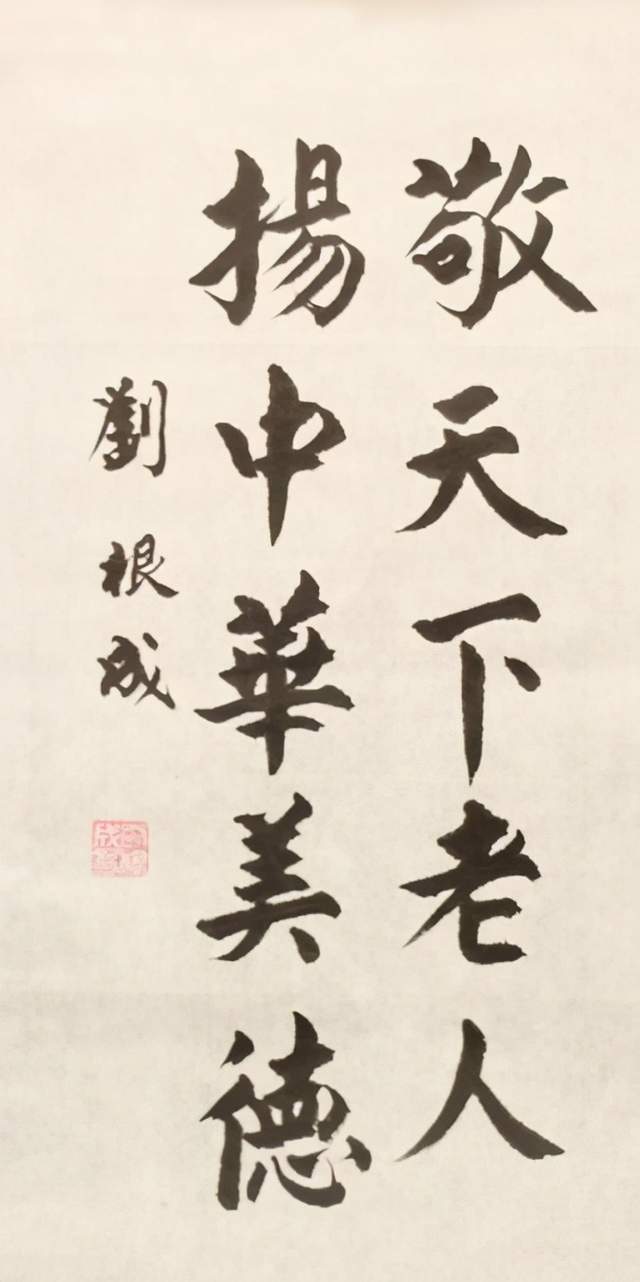 敬天下老人
揚中華美德
劉根成